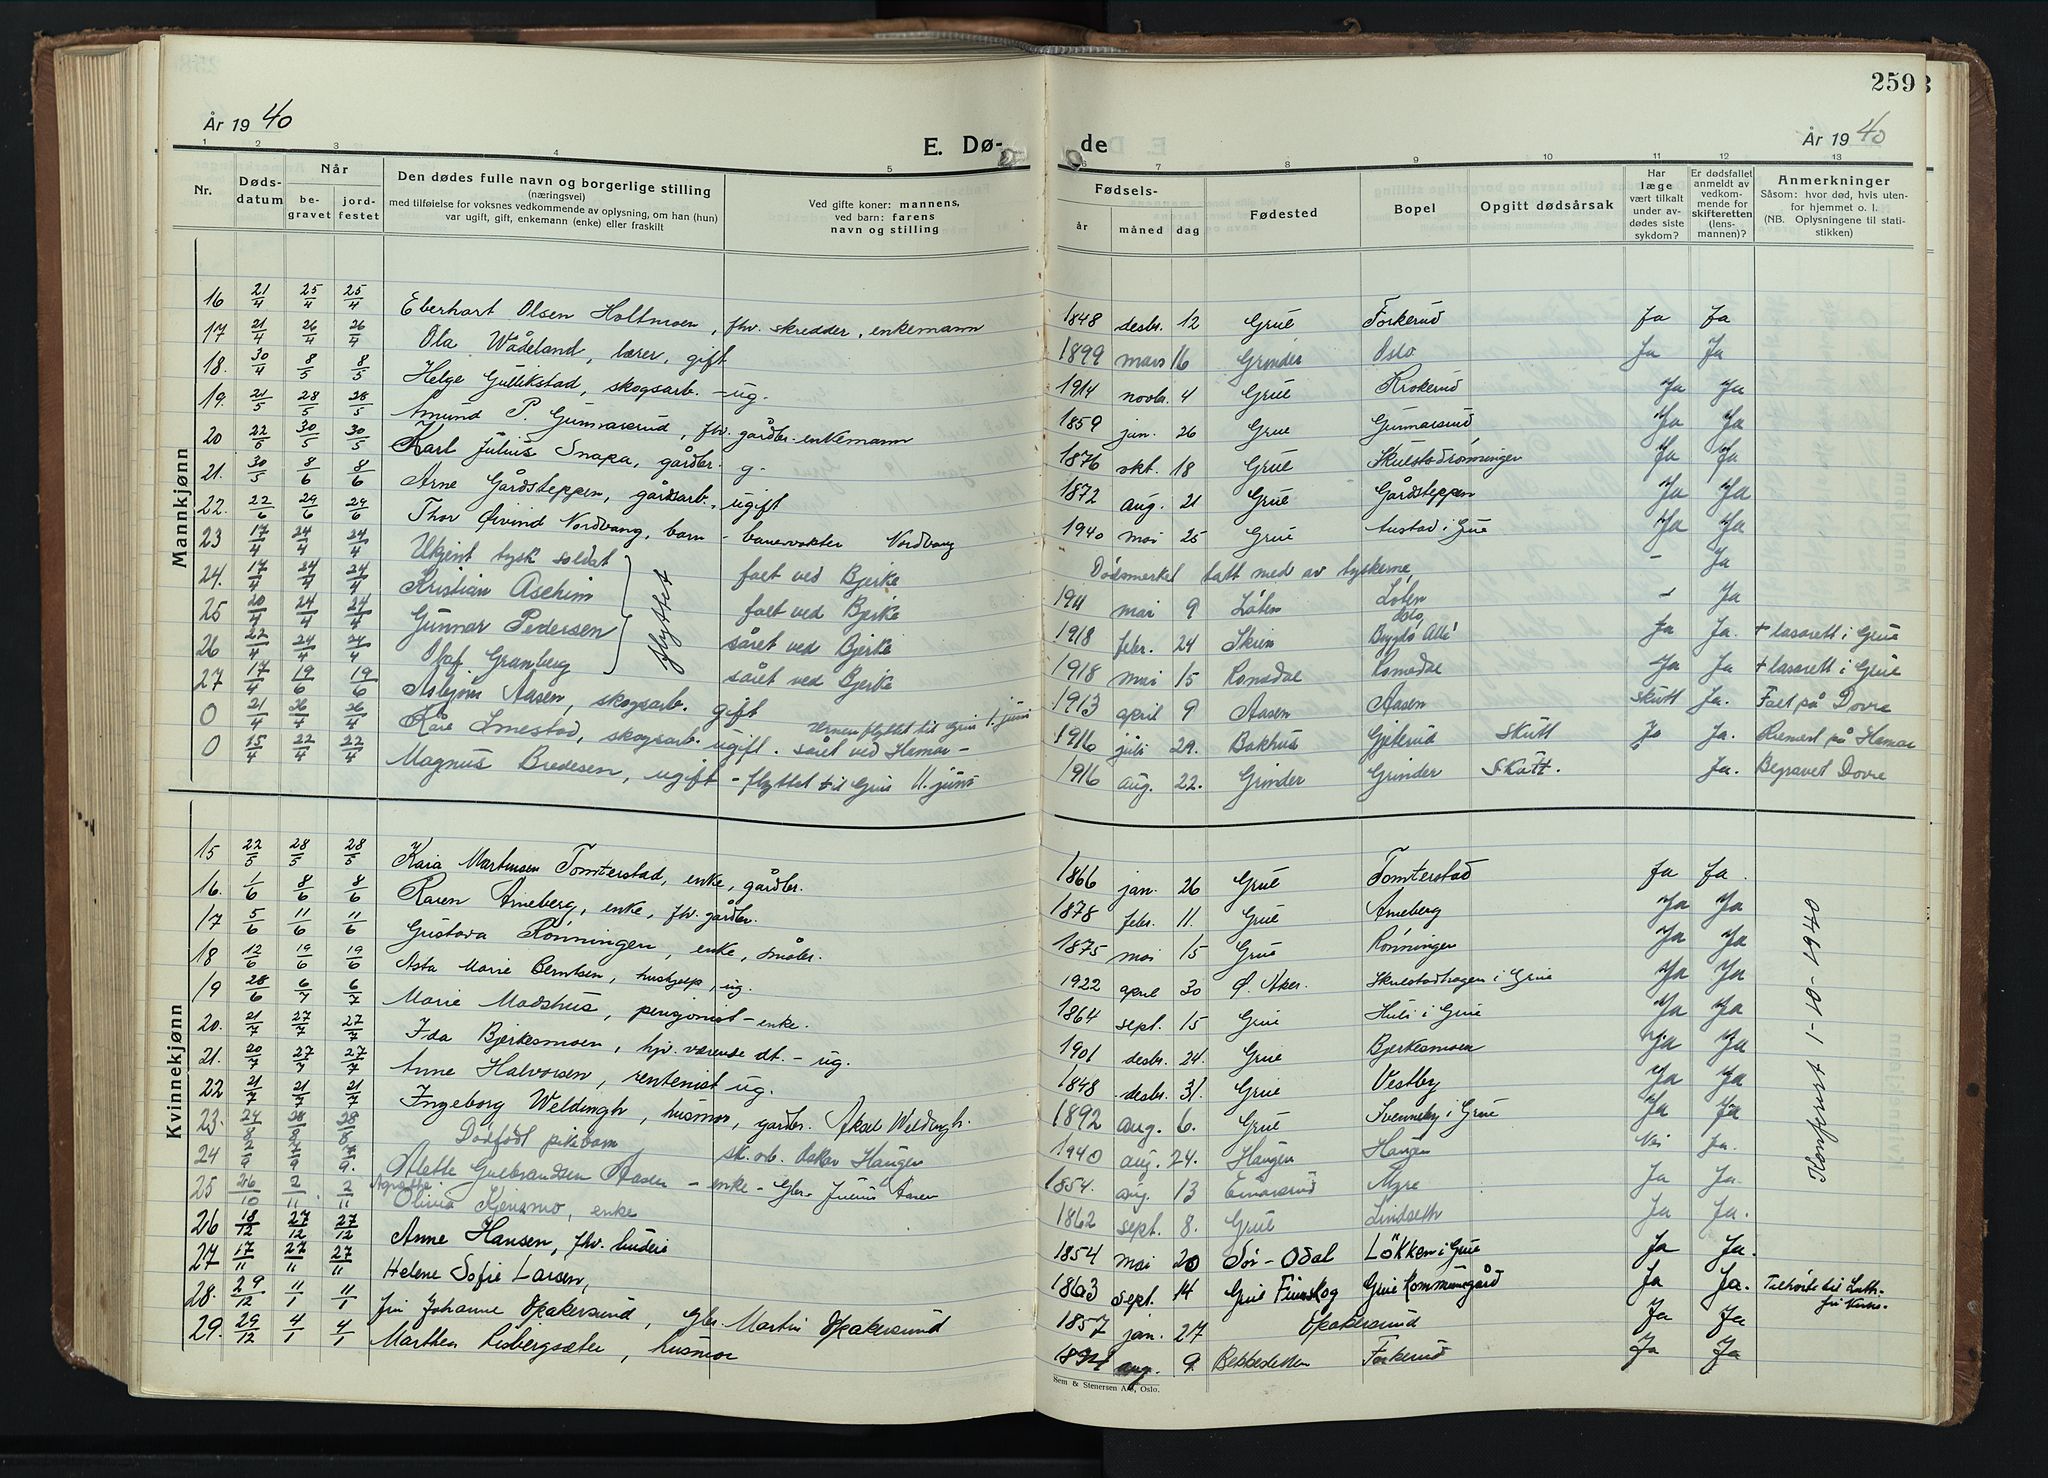 259
År 19 40
E. Dø-
de
År 19 40
1 2 3 4 5
6 7 8 9 10 11 12 13
Nr.
Døds-
datum
Når
be-
gravet
jord-
festet
Den dødes fulle navn og borgerlige stilling
(næringsvei)
med tilføielse for voksnes vedkommende av oplysning, om han (hun)
var ugift, gift, enkemann (enke) eller fraskilt
Ved gifte koner: mannens,
ved barn: farens
navn og stilling
Fødsels-
år
måned
dag
Fødested
Bopel
Opgitt dødsårsak
Har
læge
vært tilkalt
under av-
dødes siste
sykdom?
Er dødsfallet
anmeldt av
vedkom-
mende for
skifteretten
(lens-
mannen)?
Anmerkninger
Såsom: hvor død, hvis uten-
for hjemmet o. l.
(NB. Oplysningene til stati-
stikken)
Mannkjønn
16 21/4 25/4 25/4 Eberhart Olsen Holtmoen, fhv. skredder, enkemann 1848 desbr. 12 Grue Forkerud Ja Ja
17 21/4 26/4 26/4 Ola Wådeland, lærer, gift 1899 mars 16 Grinder Oslo Ja Ja
18. 30/4 8/5 8/5 Helge Gullikstad, skogsarb. - ug. 1914 novbr. 4 Grue Krokerud Ja Ja
19. 21/5 28/5 28/5 Amund P. Gunnarsrud, fhv. gårdbr. enkemann 1859 jan. 26 Grue Gunnarsrud Ja Ja
20 22/5 30/5 30/5 Karl Julius Snapa, gårdbr. g. 1876 okt. 18 Grue Skulstadrønningen Ja Ja
21. 30/5 8/6 8/6 Arne Gårdsteppen, gårdsarb., ugift 1872 aug. 21 Grue Gårdsteppen Ja Ja
22. 22/6 29/6 29/6 Thor Øivind Nordvang, barn - banevokter Nordvang 1940 mai 25 Grue Austad i Grue Ja Ja
23 17/4 24/4 24/4 Ukjent tysk soldat falt ved Bjerke Dødsmerket tatt med av tyskerne, - Ja
24. 17/4 24/4 24/4 Kristian Aschim falt ved Bjerke 1911 mai 9 Løten Løten - Ja
25 20/4 24/4 24/4 Gunnar Pedersen såret ved Bjerke 1918 febr. 24 Skien Oslo, Bygdø Allé Ja Ja. + lasarett i Grue
26 22/4 24/4 24/4 Olaf Granberg såret ved Bjerke 1918 mai 15 Romsdal Romsdal Ja Ja + lasarett i Grue
flyttet
27 17/4 19/6 19/6 Asbjørn Aasen, skogsarb. gift 1913 april 9 Aasen Aasen skutt Ja. Falt på Dovre
Urnen flyttet til Grue 1. juni
0 21/4 26/4 26/4 Kåre Imestad, skogsarb. ugift. såret ved Hamar - 1916 juli 29. Bakhus Gjeterud Skutt Ja Ja. Kremert på Hamar
0 15/4 22/4 22/4 Magnus Bredesen, ugift - flyttet til Grue 11. juni 1916 aug. 22. Grinder Grinder Skutt. Ja. Begravet Dovre
Kvinnekjønn
15 22/5 28/5 28/5 Kaia Martinsen Tomterstad, enke, gårdbr. 1866 jan. 26 Grue Tomterstad Ja Ja.
16. 1/6 8/6 8/6 Karen Arneberg, enke, fhv. gårdbr. 1878 febr. 11. Grue Arneberg Ja Ja
17 5/6 11/6 11/6 Gustava Rønningen, enke, småbr. 1875 mai 15 Grue Rønningen Ja Ja
18 12/6 19/6 19/6 Asta Marie Berntsen, hushjelp, ug. 1922 april 30 Ø. Aker. Skulstadhagen i Grue Ja Ja
19 28/6 6/7 6/7 Marie Madshus, pensjonist - enke. 1864 sept. 15 Grue Huls i Grue Ja Ja
20. 21/7 27/7 27/7 Ida Bjerkesmoen, hjv. værende dt. - ug. 1901 desbr. 24. Grue Bjerkesmoen Ja Ja
21. 20/7 27/7 27/7 Anne Halvorsen, rentenist ug. 1848 desbr. 31. Grue Vestby Ja Ja
22 21/7 21/7 21/7 Ingeborg Weldingh, husmor, gårdbr. Aksel Weldingh. 1892 aug. 6. Grue Svenneby i Grue Ja Ja
23. 24/8 28/8 28/8 Dødfødt pikebarn sk. arb. Oskar Haugen 1940 aug. 24. Haugen Haugen Nei Ja.
24 2/9 7/9 7/9. Alette Gulbrandsen Aasen - enke - Gbr. Julius Aasen 1854. aug. 13 Einarsrud Myre Ja Ja.
25 26/10 2/11 2/11 Agnethe Olivia Kjensmo, enke 1862 sept. 8. Grue Lindseth Ja Ja.
26 18/12 27/12 27/12 Anne Hansen, fhv. budeie 1854 mai 20 Sør-Odal Løkken i Grue Ja Ja.
27 17/11 27/11 27/11 Helene Sofie Larsen, 1863 sept. 14 Grue Finskog Grue Kommunegård Ja Ja. Tilhørte til Luth. fri Kirke.
28. 29/12 11/1 11/1 Johanne Opakersund, Gbr. Martin Opakersund 1857 jan. 27 Opakersund Ja Ja
29. 29/12 4/1 4/1 Marthea Lisbergsæter, husmor 1894 aug. 9 Bekkesletten Forkerud Ja Ja
Konferert 1-10-1940
Sem & Stenersen A/S, Oslo.